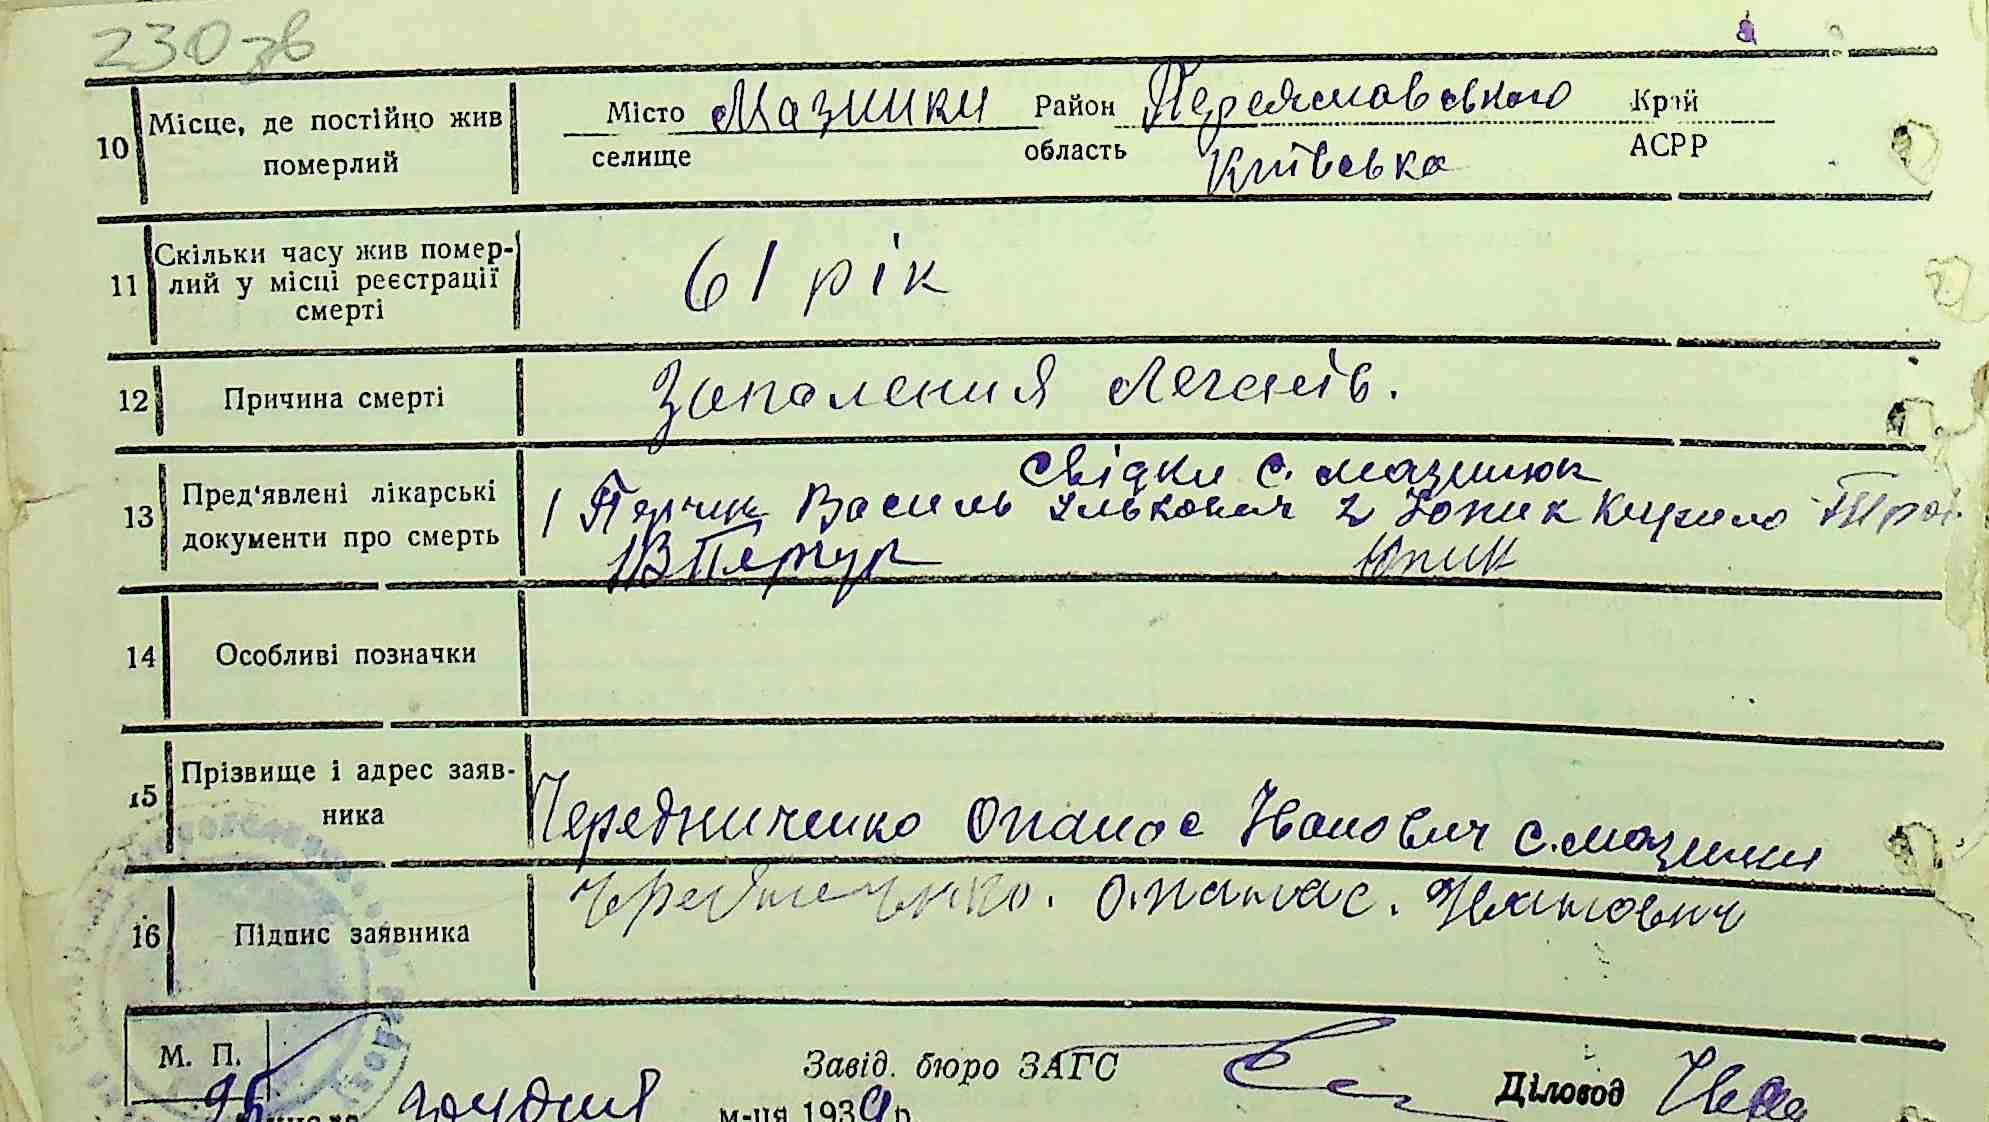 230 зв
10 Місце, де постійно жив померлий
Місто Мазинки Район Переяславського Край
селище область Київська АСРР
11 Скільки часу жив помер-
лий у місці реєстрації
смерті
61 рік
12 Причина смерті
Запалення Легенів.
13 Пред'явлені лікарські
документи про смерть
Свідки с. Мазинок
1 Василь Ількович 2 Юпик Кирило
Юпик
14 Особливі позначки
15 Прізвище і адрес заяв-
ника
Чередниченко Опанас Іванович с. Мазинки
16 Підпис заявника
Чередниченко. Опанас. Іванович
М. П.
Завід. бюро ЗАГС
Діловод
25 числа грудня м-ця 1939 р.